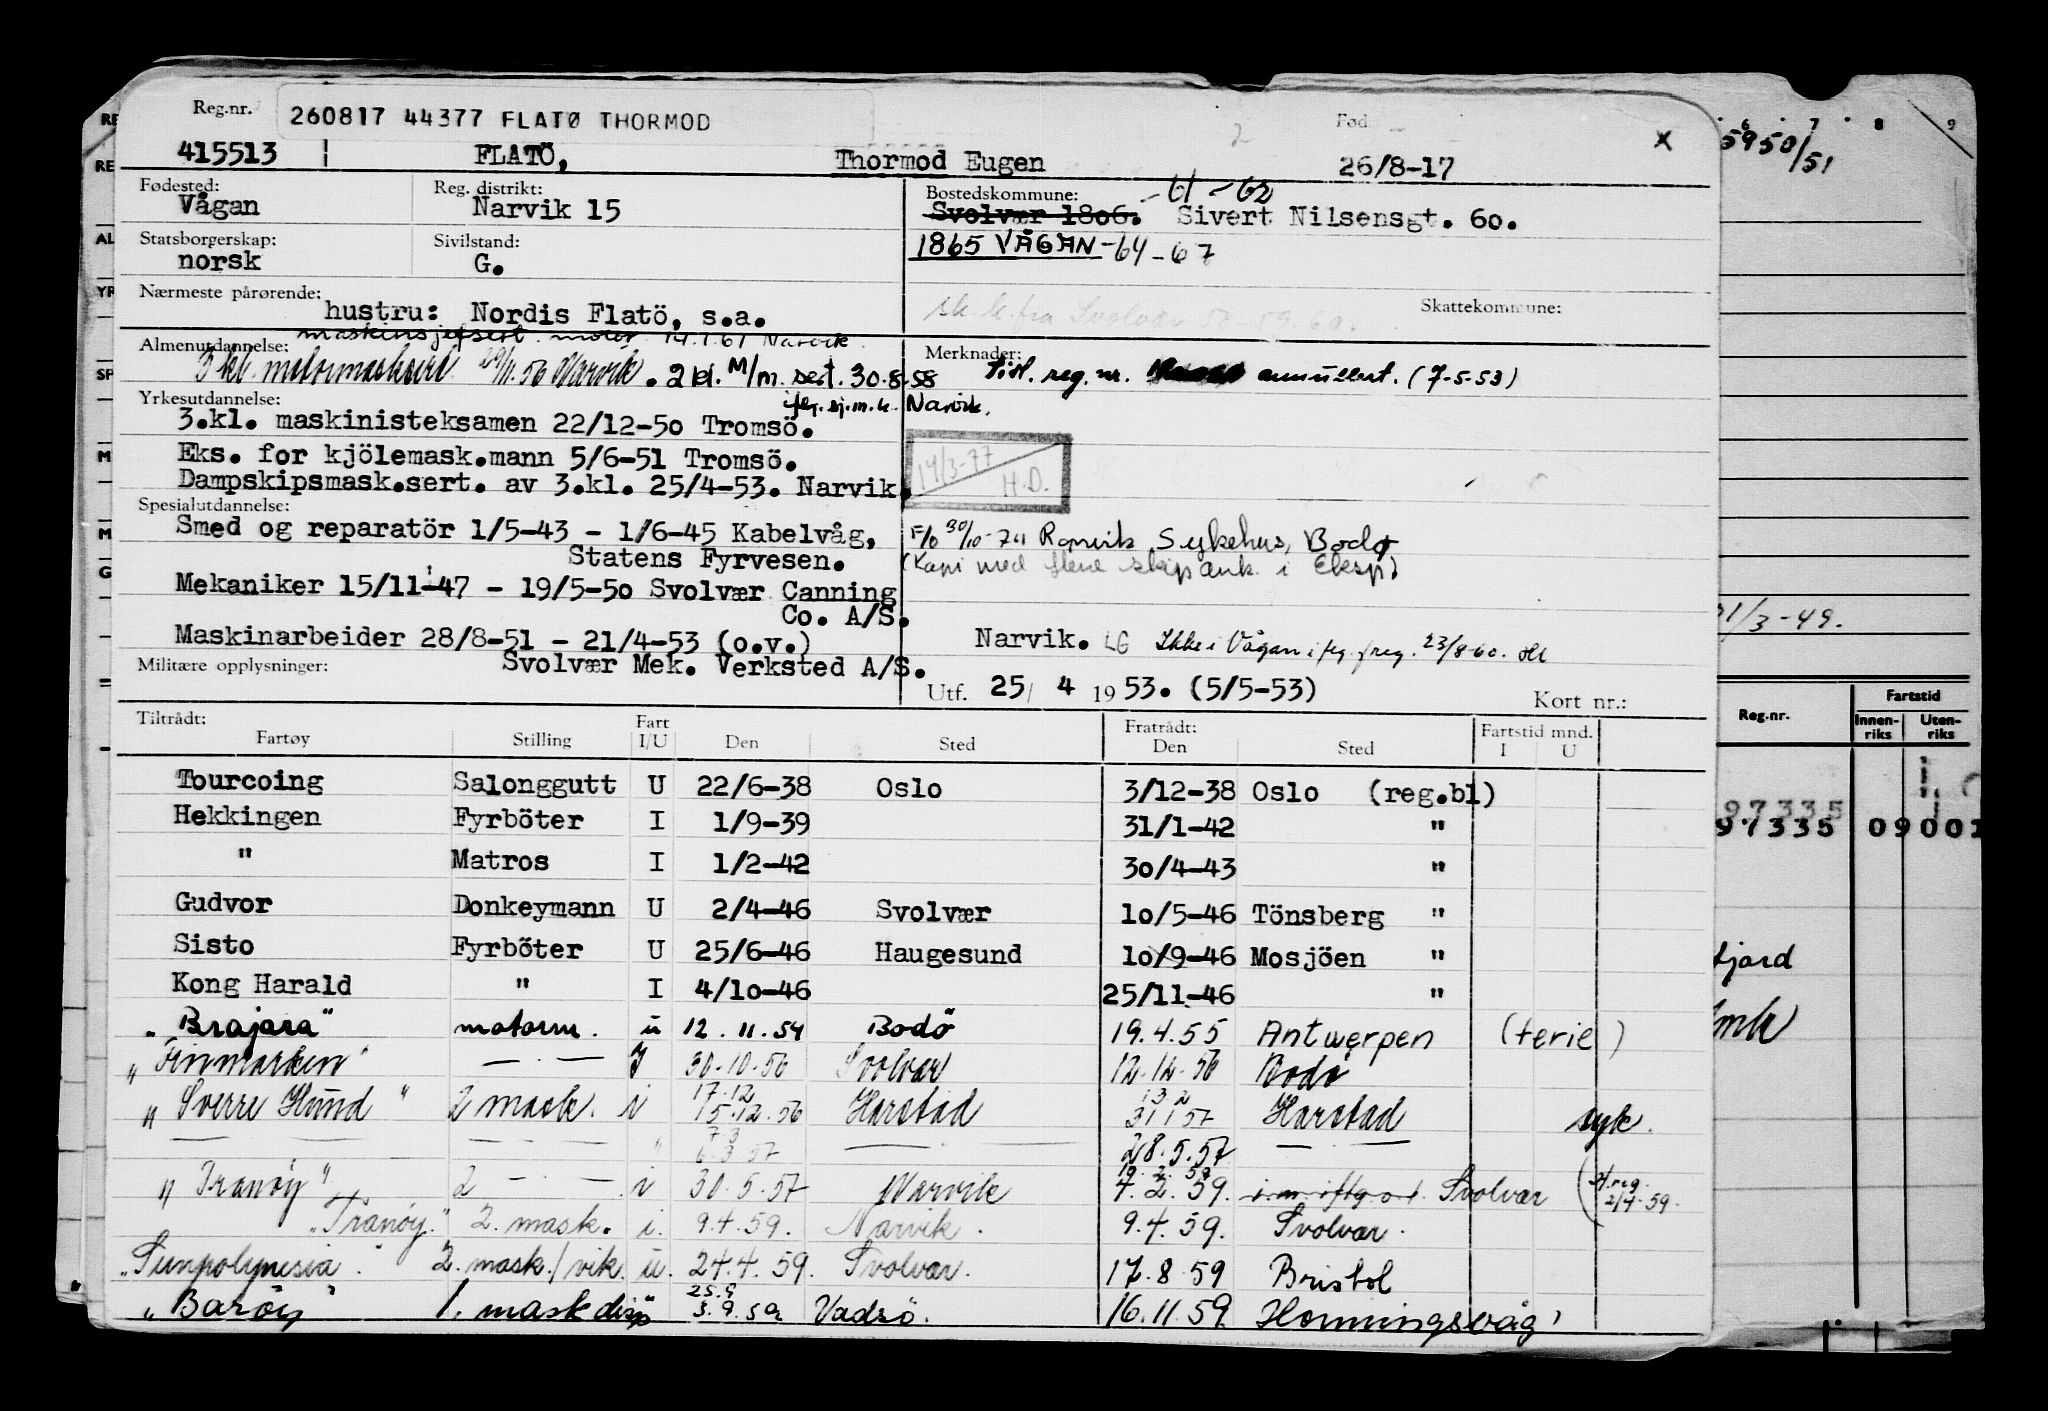 Reg.nr. 260817 44377 FLATØ THORMOD Fød.
415513 FLATÖ, Thormod Eugen 26/8-17 x
Fødested: Reg. distrikt: Bostedskommune: -61-62
Vågan Narvik 15 Svolvær 1806. Sivert Nilsensgt. 60.
Statsborgerskap: Sivilstand: 1865 VÅGAN -64-67
norsk G.
Nærmeste pårørende: Skattekommune:
hustru: Nordis Flatö, s.a. sk.k. fra Svolvær 57 59.60.
maskinsjefsert. motor 14.1.61 Narvik.
Almenutdannelse: Merknader:
3 kl. motormasksert 29/11.56 Narvik. 2 kl. M/m. sert. 30.8.58 Tidl. reg.nr. annullert. (7-5-53)
Yrkesutdannelse: Narvik.
3.kl. maskinisteksamen 22/12-50 Tromsö.
Eks. for kjölemask.mann 5/6-51 Tromsö. 14/3-77
Dampskipsmask.sert. av 3.kl. 25/4-53. Narvik. H.D.
Spesialutdannelse:
Smed og reparatör 1/5-43 - 1/6-45 Kabelvåg, F/o 30/10-74 Rønvik Sykehus, Bodø
Statens Fyrvesen. (Kopi med flere skip ank. i Eksp.)
Mekaniker 15/11-47 - 19/5-50 Svolvær Canning
Co. A/S.
Maskinarbeider 28/8-51 - 21/4-53 (o.v.) Narvik. LG Ikke i Vågan i flg. f.reg. 23/8-60.
Militære opplysninger: Svolvær Mek. Verksted A/S. Utf. 25/ 4 1953. (5/5-53) Kort nr.:
Tiltrådt: Fart Fratrådt: Fartstid mnd.
Fartøy Stilling I/U Den Sted Den Sted I U
Tourcoing Salonggutt U 22/6-38 Oslo 3/12-38 Oslo (reg.bl)
Hekkingen Fyrböter I 1/9-39 31/1-42 "
" Matros I 1/2-42 30/4-43 "
Gudvor Donkeymann U 2/4-46 Svolvær 10/5-46 Tönsberg "
Sisto Fyrböter U 25/6-46 Haugesund 10/9-46 Mosjöen "
Kong Harald " I 4/10-46 25/11-46 "
"Brajara" motorm. u 12.11.54 Bodö 19.4.55 Antwerpen (ferie)
"Finmarken" — . — I 30.10.56 Svolvær 12.12.56 Bodö
17.12 13 2
"Sverre Hund" 2 mask. i 15.12.56 Harstad 31 1 57 Harstad syk.
7 3
— — — — . — " 6 3 57 — 28.5.57 — . —
19.2.58
"Tranöy" 2 — . — i 30.5.57 Narvik 7.2.59. Svolvær (f.reg. 2/4-59.
"Tranöy." 2. mask. i. 9.4.59. Narvik. 9.4.59. Svolvær.
"Sunpolynesia". 2. mask./vik. u. 24.4.59. Svolvær. 17.8.59 Bristol
25.9
"Baröy" 1. mask disp 3.9.59 Vadsö. 16.11.59. Honningsvåg
6 7 8 9
5950/51
31/3-49.
Reg.nr. Fartstid
Innenriks Utenriks
97335
97335 09 001
fjord
RE
RE
AL
YR
SP
M
M
G